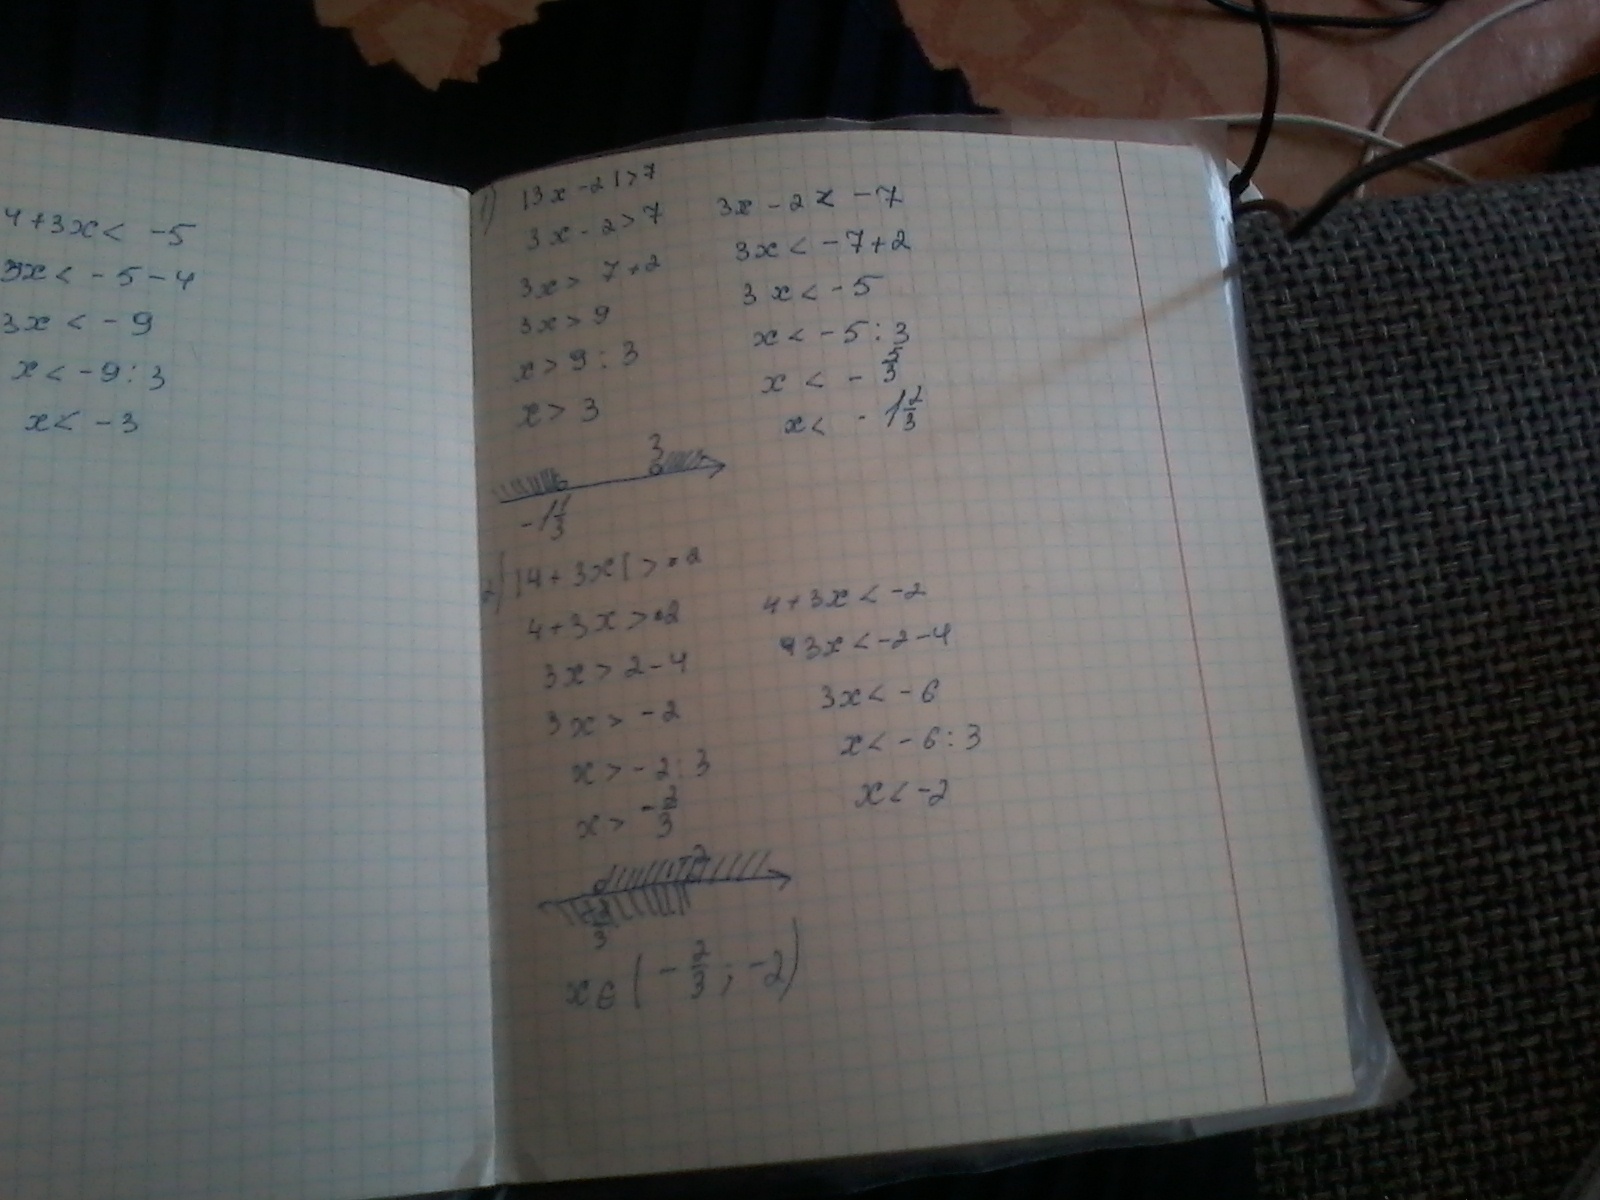 4+3x < -5
3x < -5-4
3x < -9
x < -9:3
x < -3
1) |3x-2|>7
3x-2>7
3x> 7+2
3x>9
x>9:3
x>3
3x-2<-7
3x<-7+2
3x<-5
x<-5:3
x < - 5/3
x< -1 2/3
3
2) |4+3x|>2
4+3x>2
3x>2-4
3x>-2
x>-2:3
x> -2/3
4+3x<-2
3x<-2-4
3x<-6
x<-6:3
x<-2
x∈(-2/3; -2)